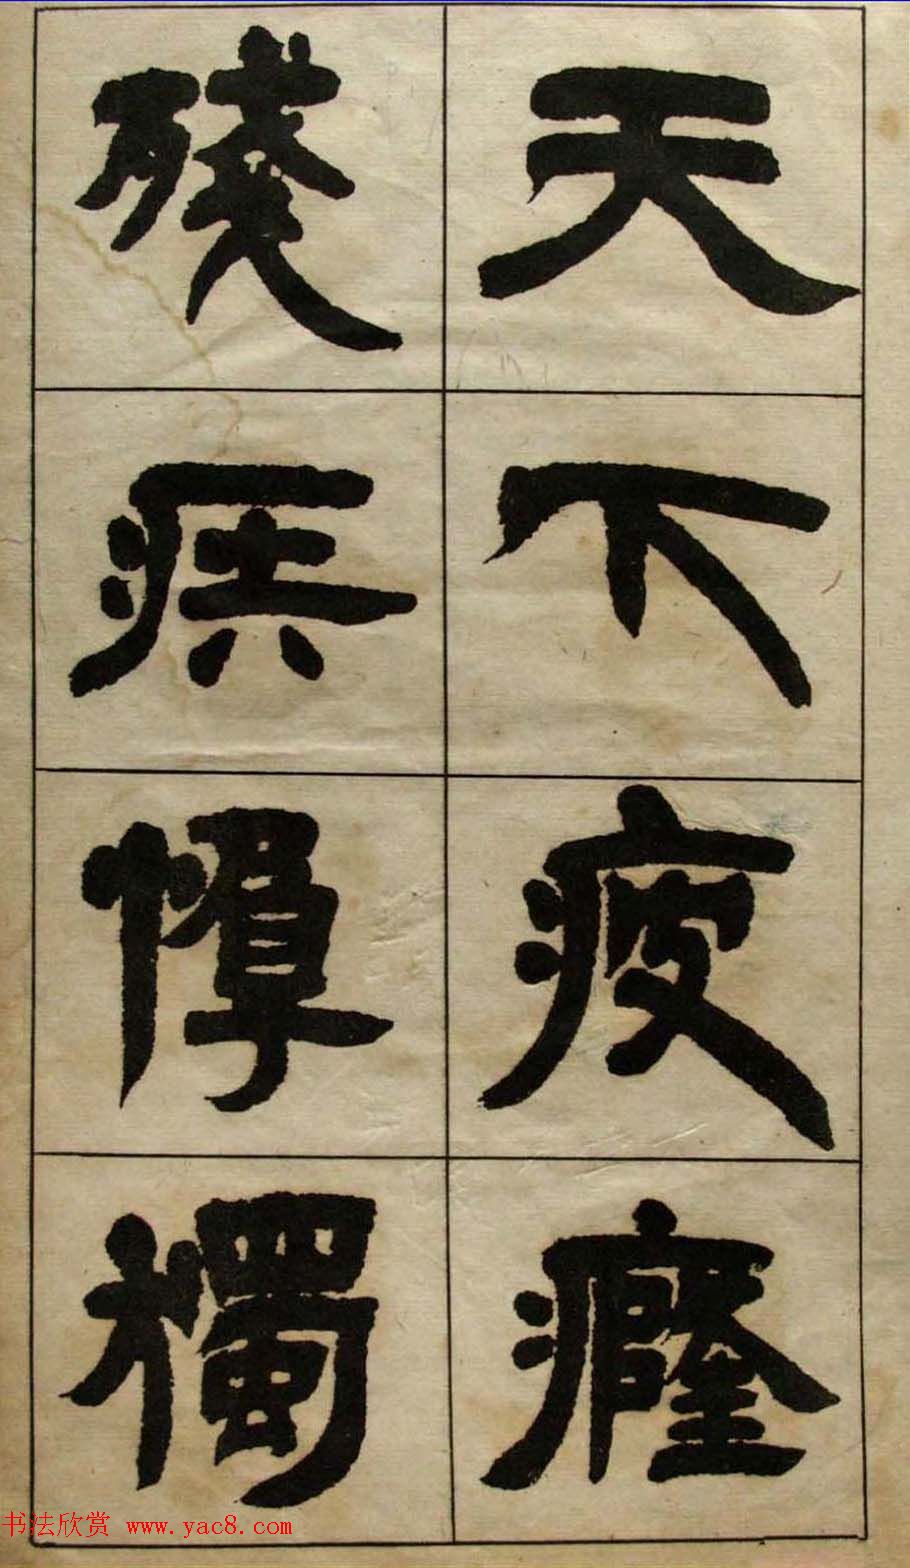 天下疲癃
殘疾惸獨
书法欣赏 www.yac8.com